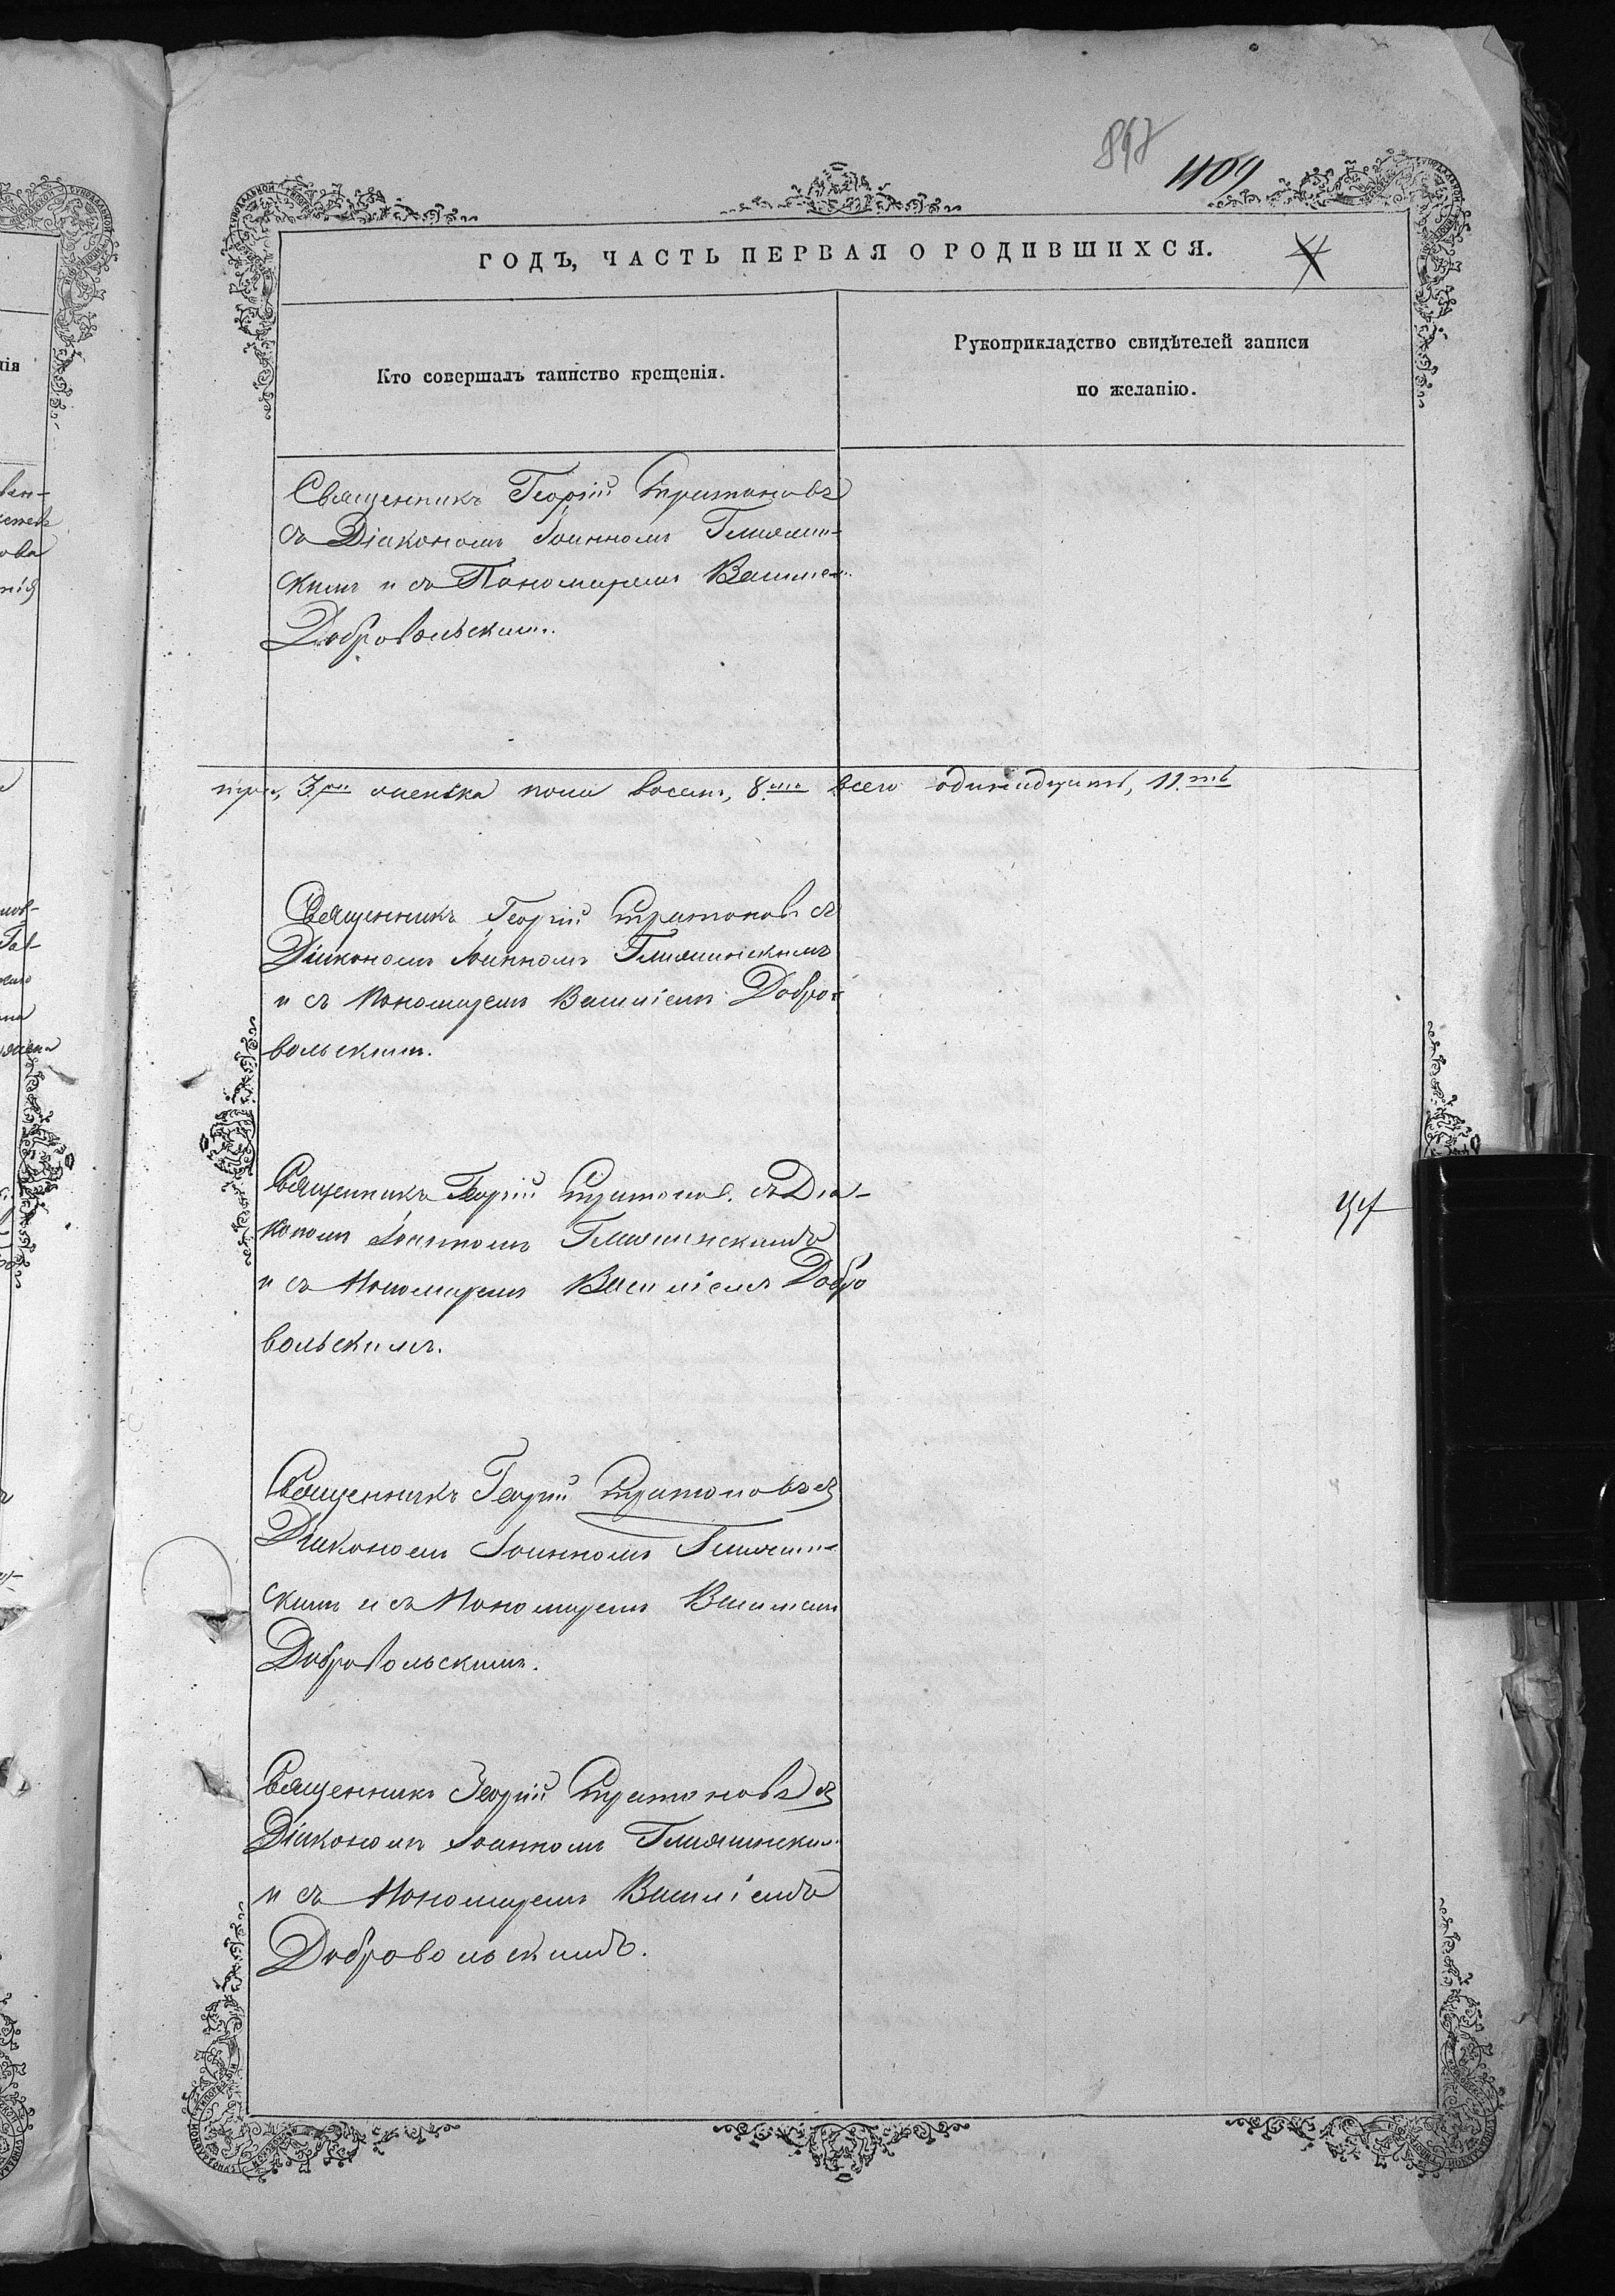 897
1109
ГОДЪ, ЧАСТЬ ПЕРВАЯ О РОДИВШИХСЯ.
Кто совершалъ таинство крещенія.
Рукоприкладство свидѣтелей записи
по желанію.
Священникъ Георгій Стратоновъ
съ Діакономъ Іоанномъ
скимъ и съ Пономаремъ Василіем
Добровольскимъ.
3 женска пола восемь, 8 всего одинадцать, 11.ть
Священникъ Георгій Стратоновъ съ
Діакономъ Іоанномъ
и съ Пономаремъ Василіемъ Добро-
вольскимъ.
Священникъ Георгій Стратонов. съ Діа-
кономъ Іоанномъ
и съ Пономаремъ Василіемъ Добро
вольскимъ.
Священникъ Георгій Стратоновъ съ
Діакономъ Іоанномъ
скимъ и съ Пономаремъ Василіемъ
Добровольскимъ.
Священникъ Георгій Стратоновъ съ
Діакономъ Іоанномъ
и съ Пономаремъ Василіемъ
Добровольскимъ.